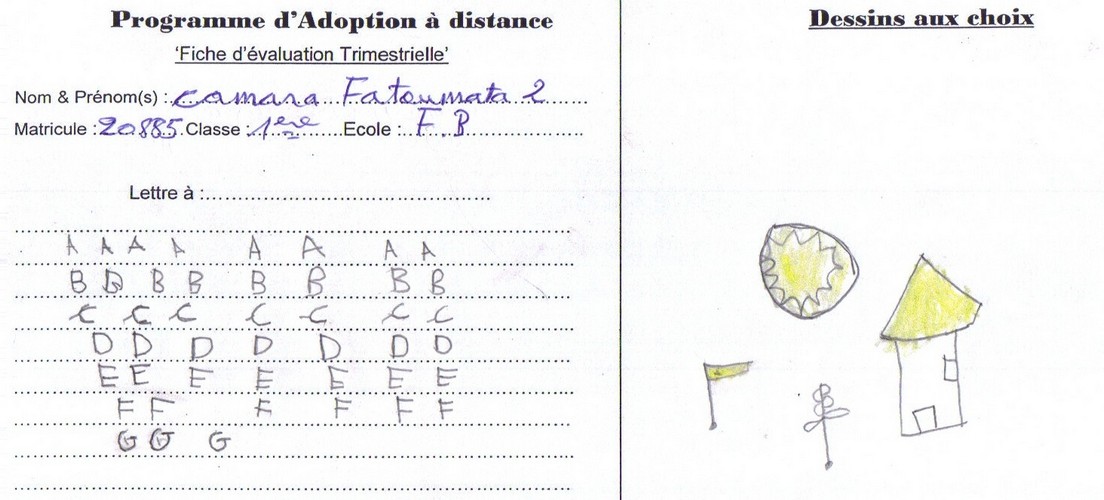 Programme d'Adoption à distance
'Fiche d'évaluation Trimestrielle'
Nom & Prénom(s) : Camara Fatoumata 2
Matricule : 20885 Classe : 1ère Ecole : F.B
Lettre à :
A A A A A A A A
B B B B B B B B
C C C C C C C
D D D D D D D
E E E E E E E
F F F F F F
G G G
Dessins aux choix